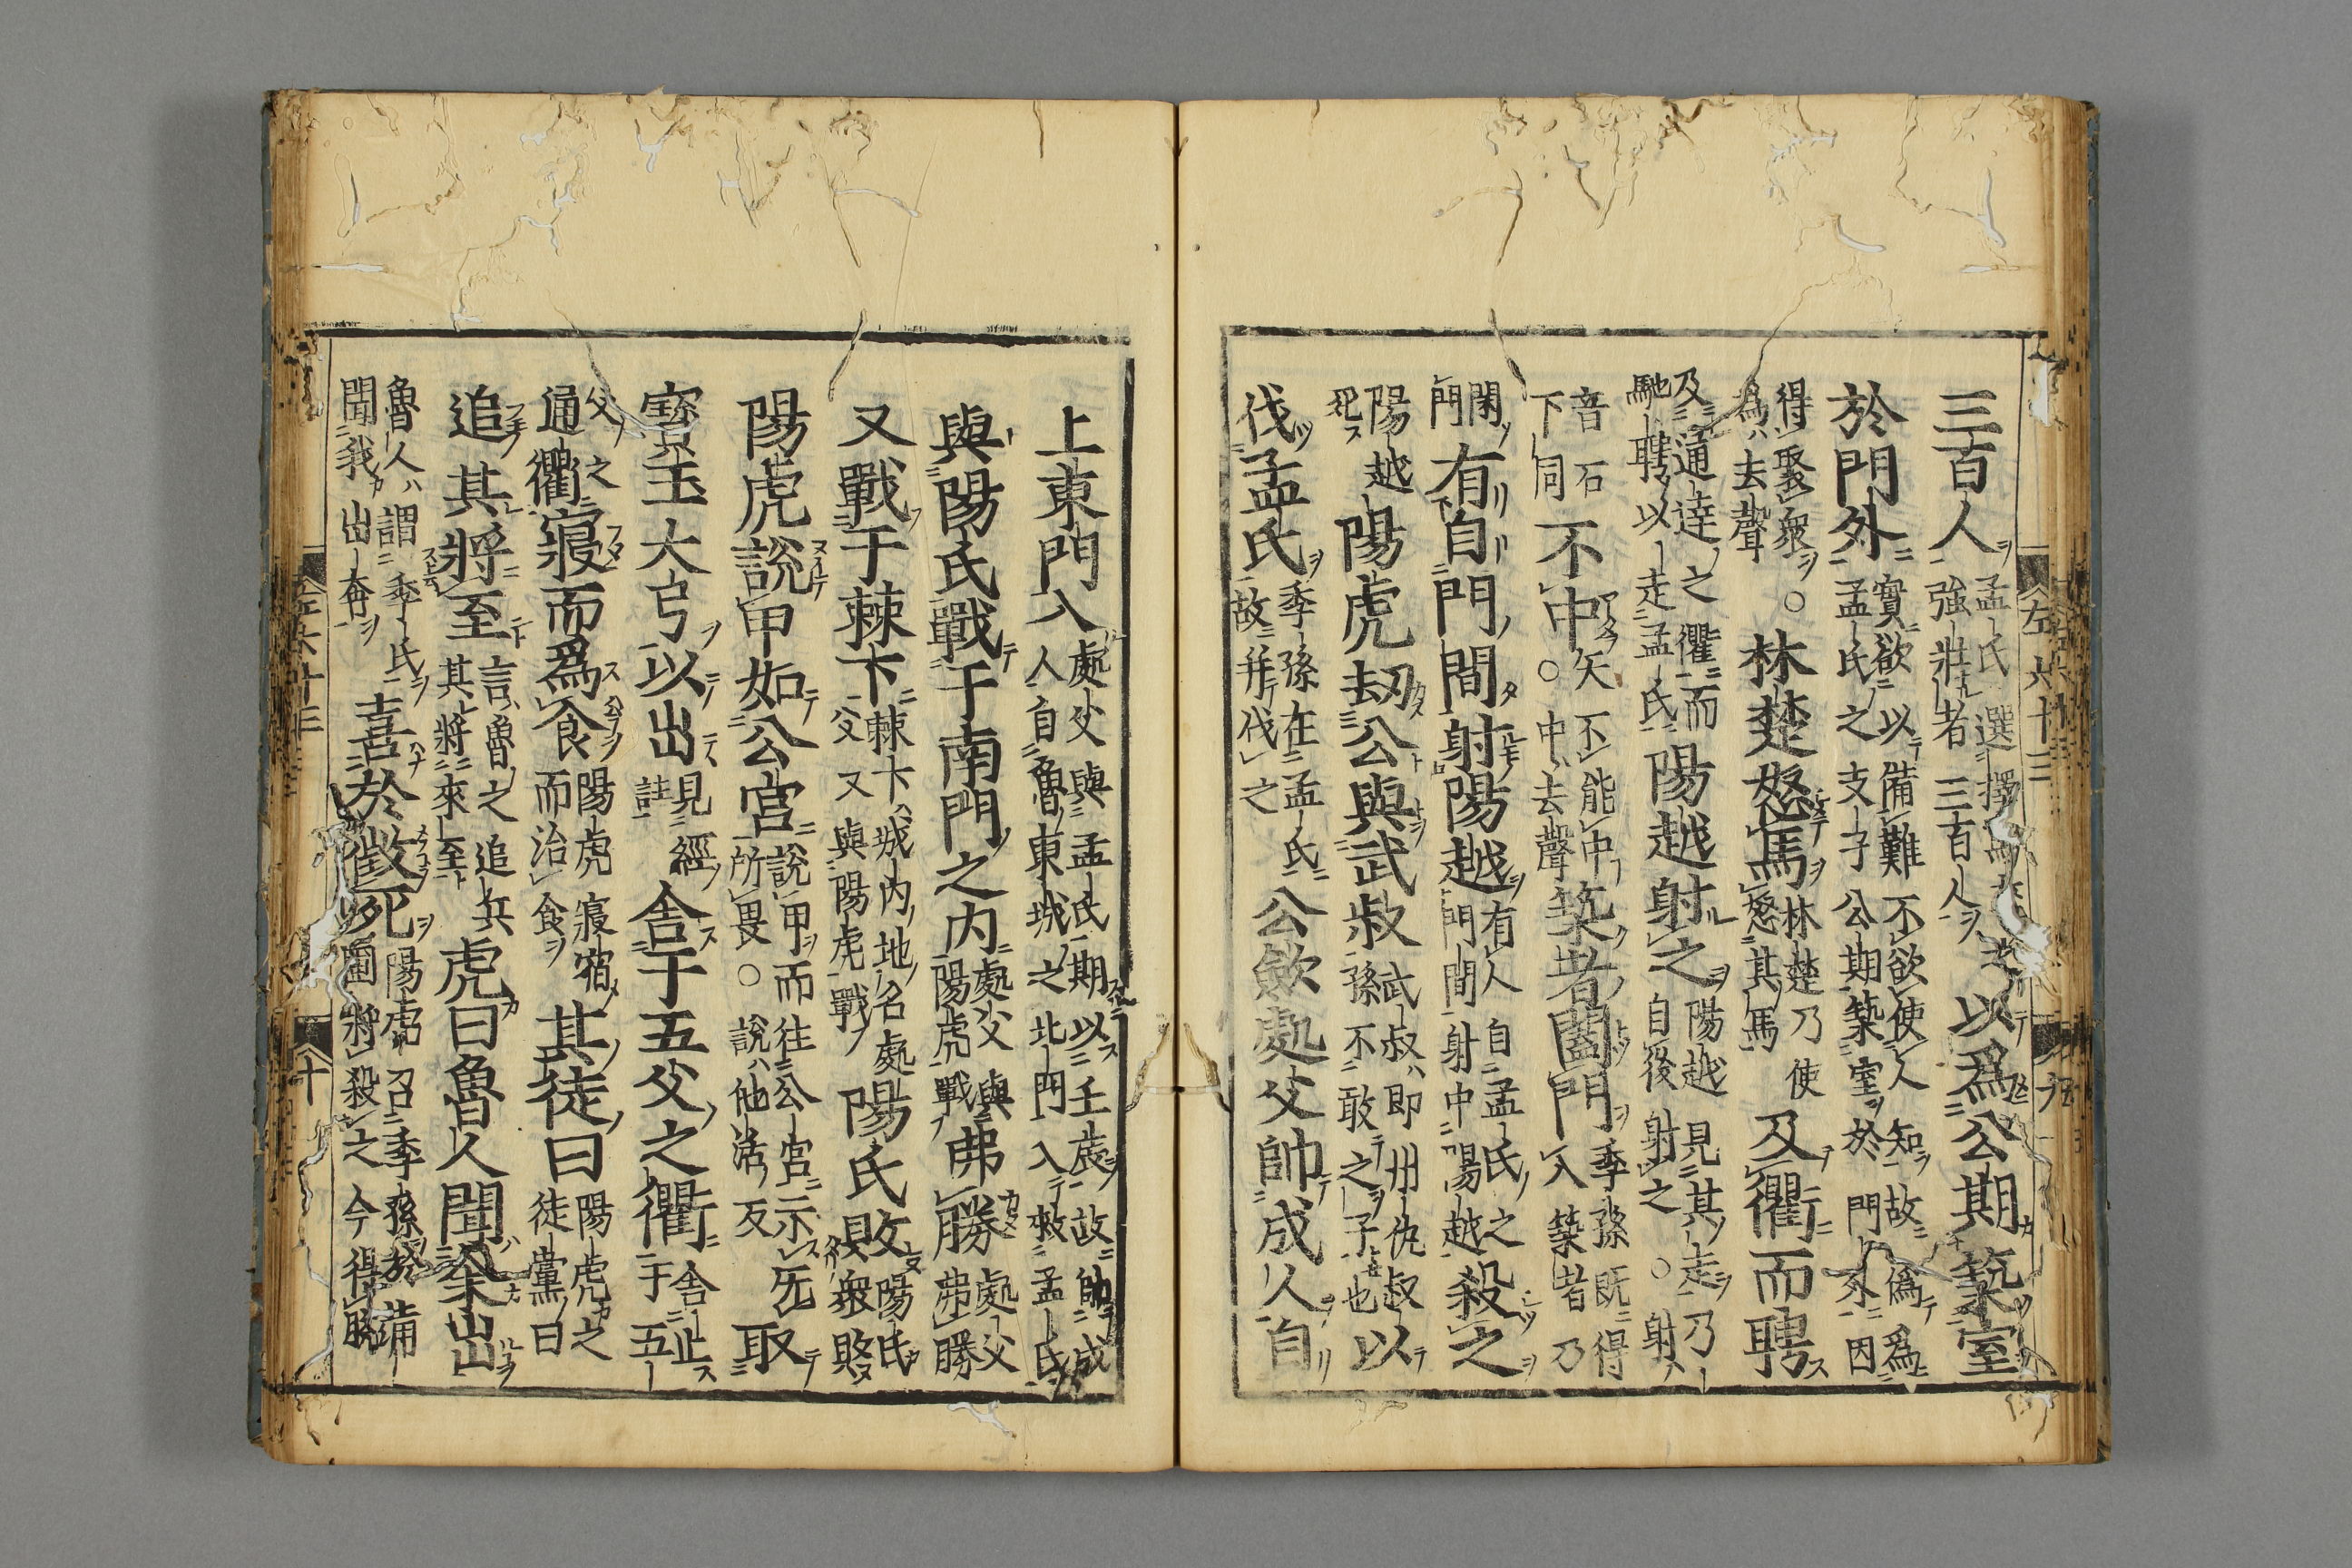 左六十三 九
三百人孟氏選擇強壯者三百人以爲公期築室
於門外實欲以備難不欲使人知故偽爲孟氏之支子公期築室於門外因
得聚衆爲去聲○林楚怒馬林楚乃使怒其馬及衢而騁
及通逵之衢而馳騁以走孟氏陽越射之陽越見其走乃自後射之○射
音石下同不中矢不能中○中去聲築者闔門季孫既得入築者乃
閑門有自門間射陽越有人自孟氏之門間射中陽越殺之
陽越死陽虎劫公與武叔武叔即州仇叔孫不敢之子也以
伐孟氏季孫在孟氏故并伐之公斂處父帥成人自
上東門入處父與孟氏期以壬辰故帥成人自魯東城之北門入救孟氏
與陽氏戰于南門之内處父與陽虎戰弗勝處父弗勝
又戰于棘下棘下城内地名處父又與陽虎戰陽氏敗陽氏衆敗
陽虎說甲如公宮說甲而往公宮示无所畏○說他活反取
寶玉大弓以出見經註舍于五父之衢舍止于五
父之通衢寢而爲食陽虎寢宿而治食其徒曰陽虎之徒黨曰
追其將至言魯之追兵其將來至虎曰魯人聞余出
魯人謂季氏聞我出奔喜於徵死陽虎召季孫於蒲圃將殺之今得脱
左六十三 十